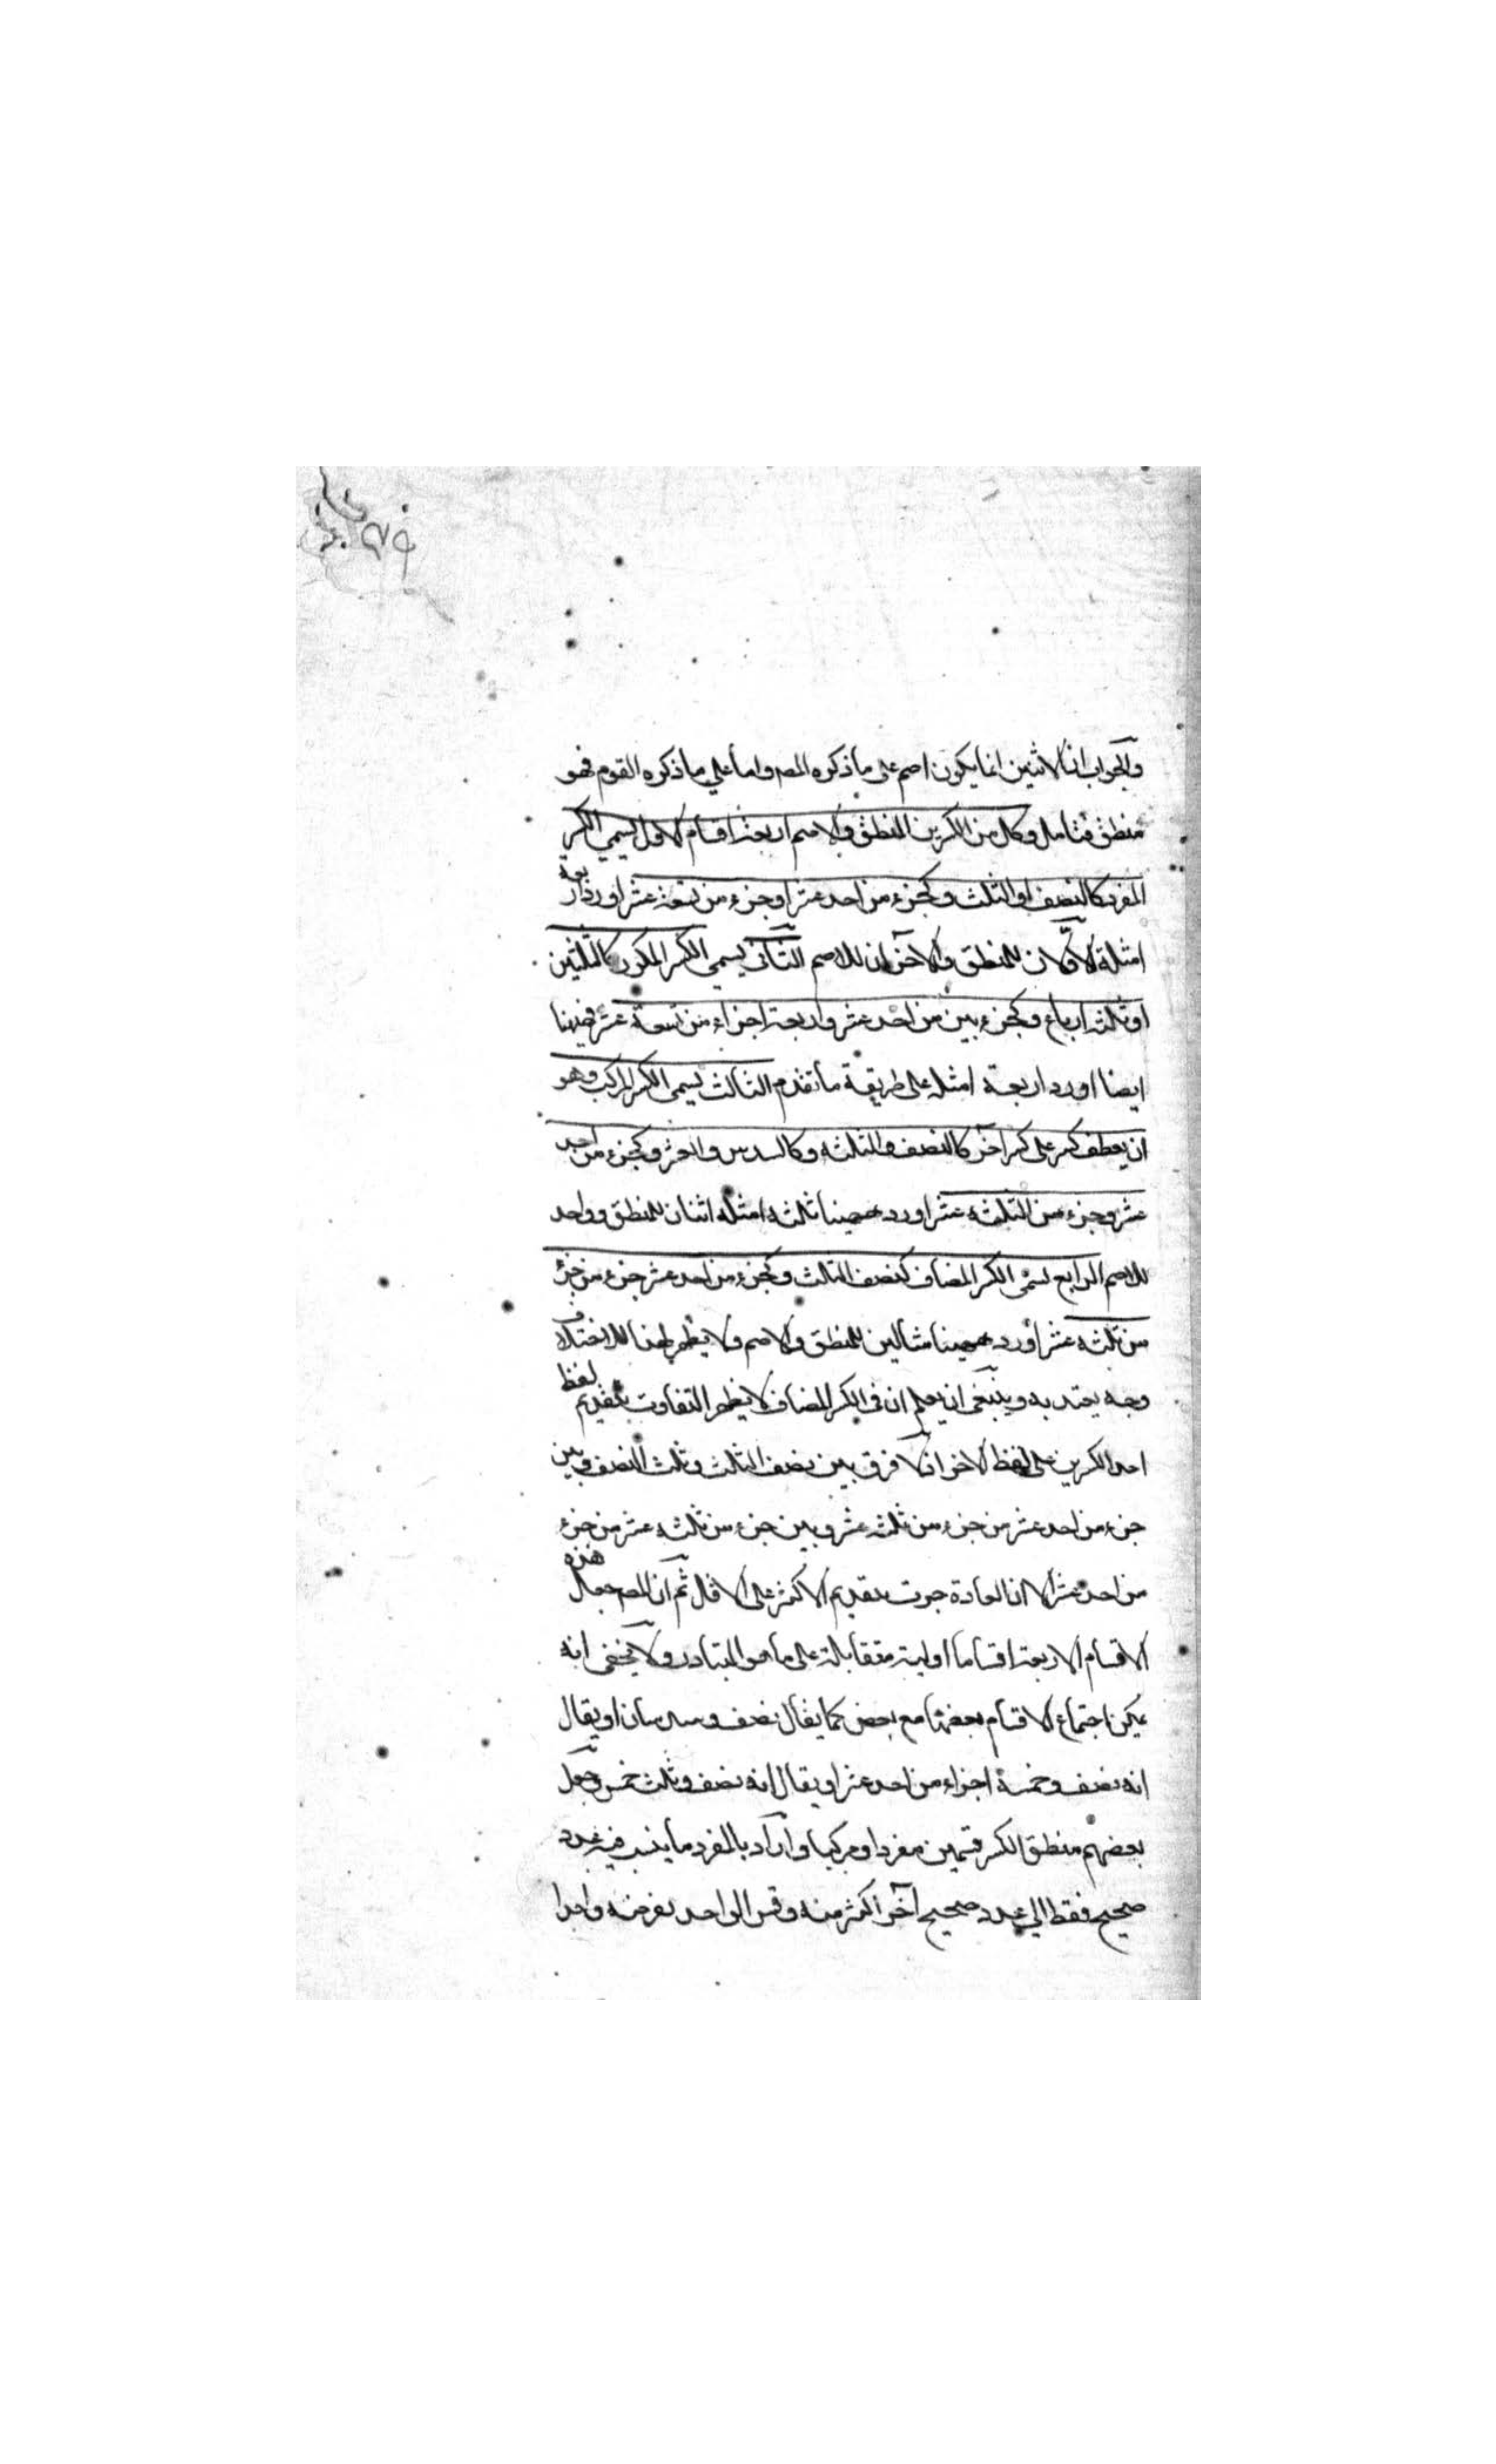 والجواب ان الاثنين انما يكون اصم على ما ذكره المصـ واما على ما ذكره القوم فهو
منطق فتامل وكل من الكسرين المنطق والاصم اربعة اقسام الاول يسمى الكسر
المفرد كالنصف او الثلث وكجزء من احد عشر او جزء من تسعة عشر اورد اربعة
امثلة الاولان للمنطق والاخران للاصم الثاني يسمى الكسر المكرر كالثلثين
او ثلثه ارباع وكجزءين من احد عشر واربعة اجزاء من تسعة عشر فههنا
ايضا اورد اربعة امثله على طريقة ما تقدم الثالث يسمى الكسر المركب وهو
ان يعطف كسر على كسر آخر كالنصف والثلث وكالسدس والعشر وكجزء من احد
عشر وجزء من الثلثه عشر اورد ههنا ثلثه امثله اثنان للمنطق وواحد
للاصم الرابع يسمى الكسر المضاف كنصف الثلث وكجزء من احد عشر جزء من جزء
من ثلثه عشر أورد ههنا مثالين للمنطق والاصم ولا يظهر لهذا الاختلاف
وجه يعتد به وينبغي ان يعلم ان في الكسر المضاف لا يظهر التفاوت بتقديم لفظ
احد الكسرين على لفظ الاخر اذ لا فرق بين نصف الثلث وثلث النصف وبين
جزء من احد عشر من جزء من ثلثه عشر وبين جزء من ثلثه عشر من جزء
من احد عشر الا ان العادة جرت بتقديم الاكثر على الاقل ثم ان المصـ جعل هذه
الاقسام الاربعة اقساما اولية متقابلة على ما هو المتبادر ولا يخفى انه
يمكن اجتماع الاقسام بعضها مع بعض كما يقال نصف وسدسان او يقال
انه نصف وخمسة اجزاء من احد عشر او يقال انه نصف وثلث خمس وجعل
بعضهم منطق الكسر قسمين مفردا ومركبا واراد بالمفرد ما ينسب فيه عدد
صحيح فقط الى عدد صحيح آخر اكثر منه وقس الواحد بفرضه واحدا